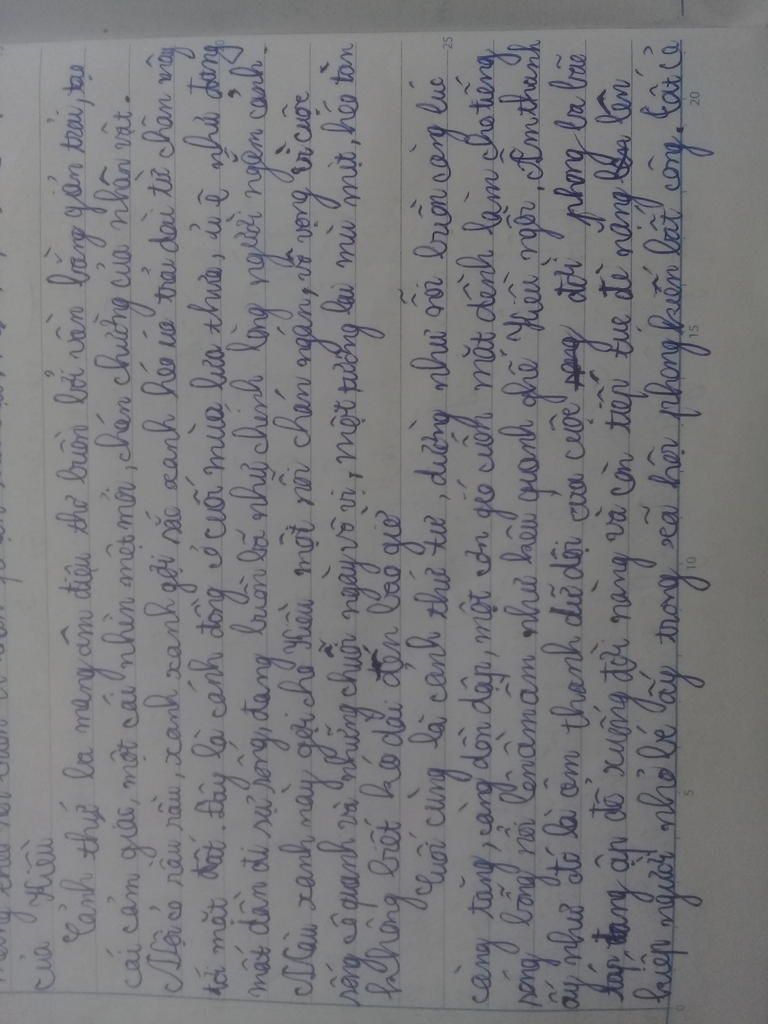 của Kiều
Cảnh thứ ba mang âm điệu thơ buồn bởi vần bằng giãn trải, tạo
cái cảm giác, một cái nhìn mệt mỏi, chán chường của nhân vật.
Nội cỏ rầu rầu, xanh xanh gợi sắc xanh héo úa trải dài từ chân mây
tới mặt đất. Đây là cánh đồng ở cuối mùa lưa thưa, ủ ê như đang
mất dần đi sự sống, đang buồn bã như chính lòng người ngắm cảnh.
Màu xanh này gợi cho Kiều một nỗi chán ngán, vô vọng vì cuộc
sống cô quạnh và những chuỗi ngày vô vị, một tương lai mù mịt, héo tàn
không biết kéo dài đến bao giờ
Cuối cùng là cảnh thứ tư, dường như nỗi buồn càng lúc
càng tăng, càng dồn dập, một cơn gió cuốn mặt dềnh làm cho tiếng
sóng bỗng nổi lên ầm ầm như kêu quanh ghế Kiều ngồi, Âm thanh
ấy như đó là âm thanh dữ dội của cuộc đời phong ba bão
táp đang ập đổ xuống đời nàng và còn tiếp tục đè nặng lên
kiếp người nhỏ bé ấy trong xã hội phong kiến bất công. Tất cả